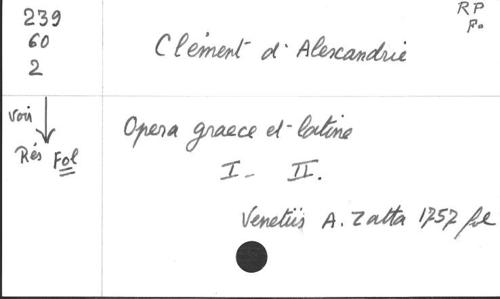 239
60
2
RP
Fo
Clément d'Alexandrie
voir
Rés Fol
Opera graece et latine
I - II.
Venetiis A. Zatta 1757 fol